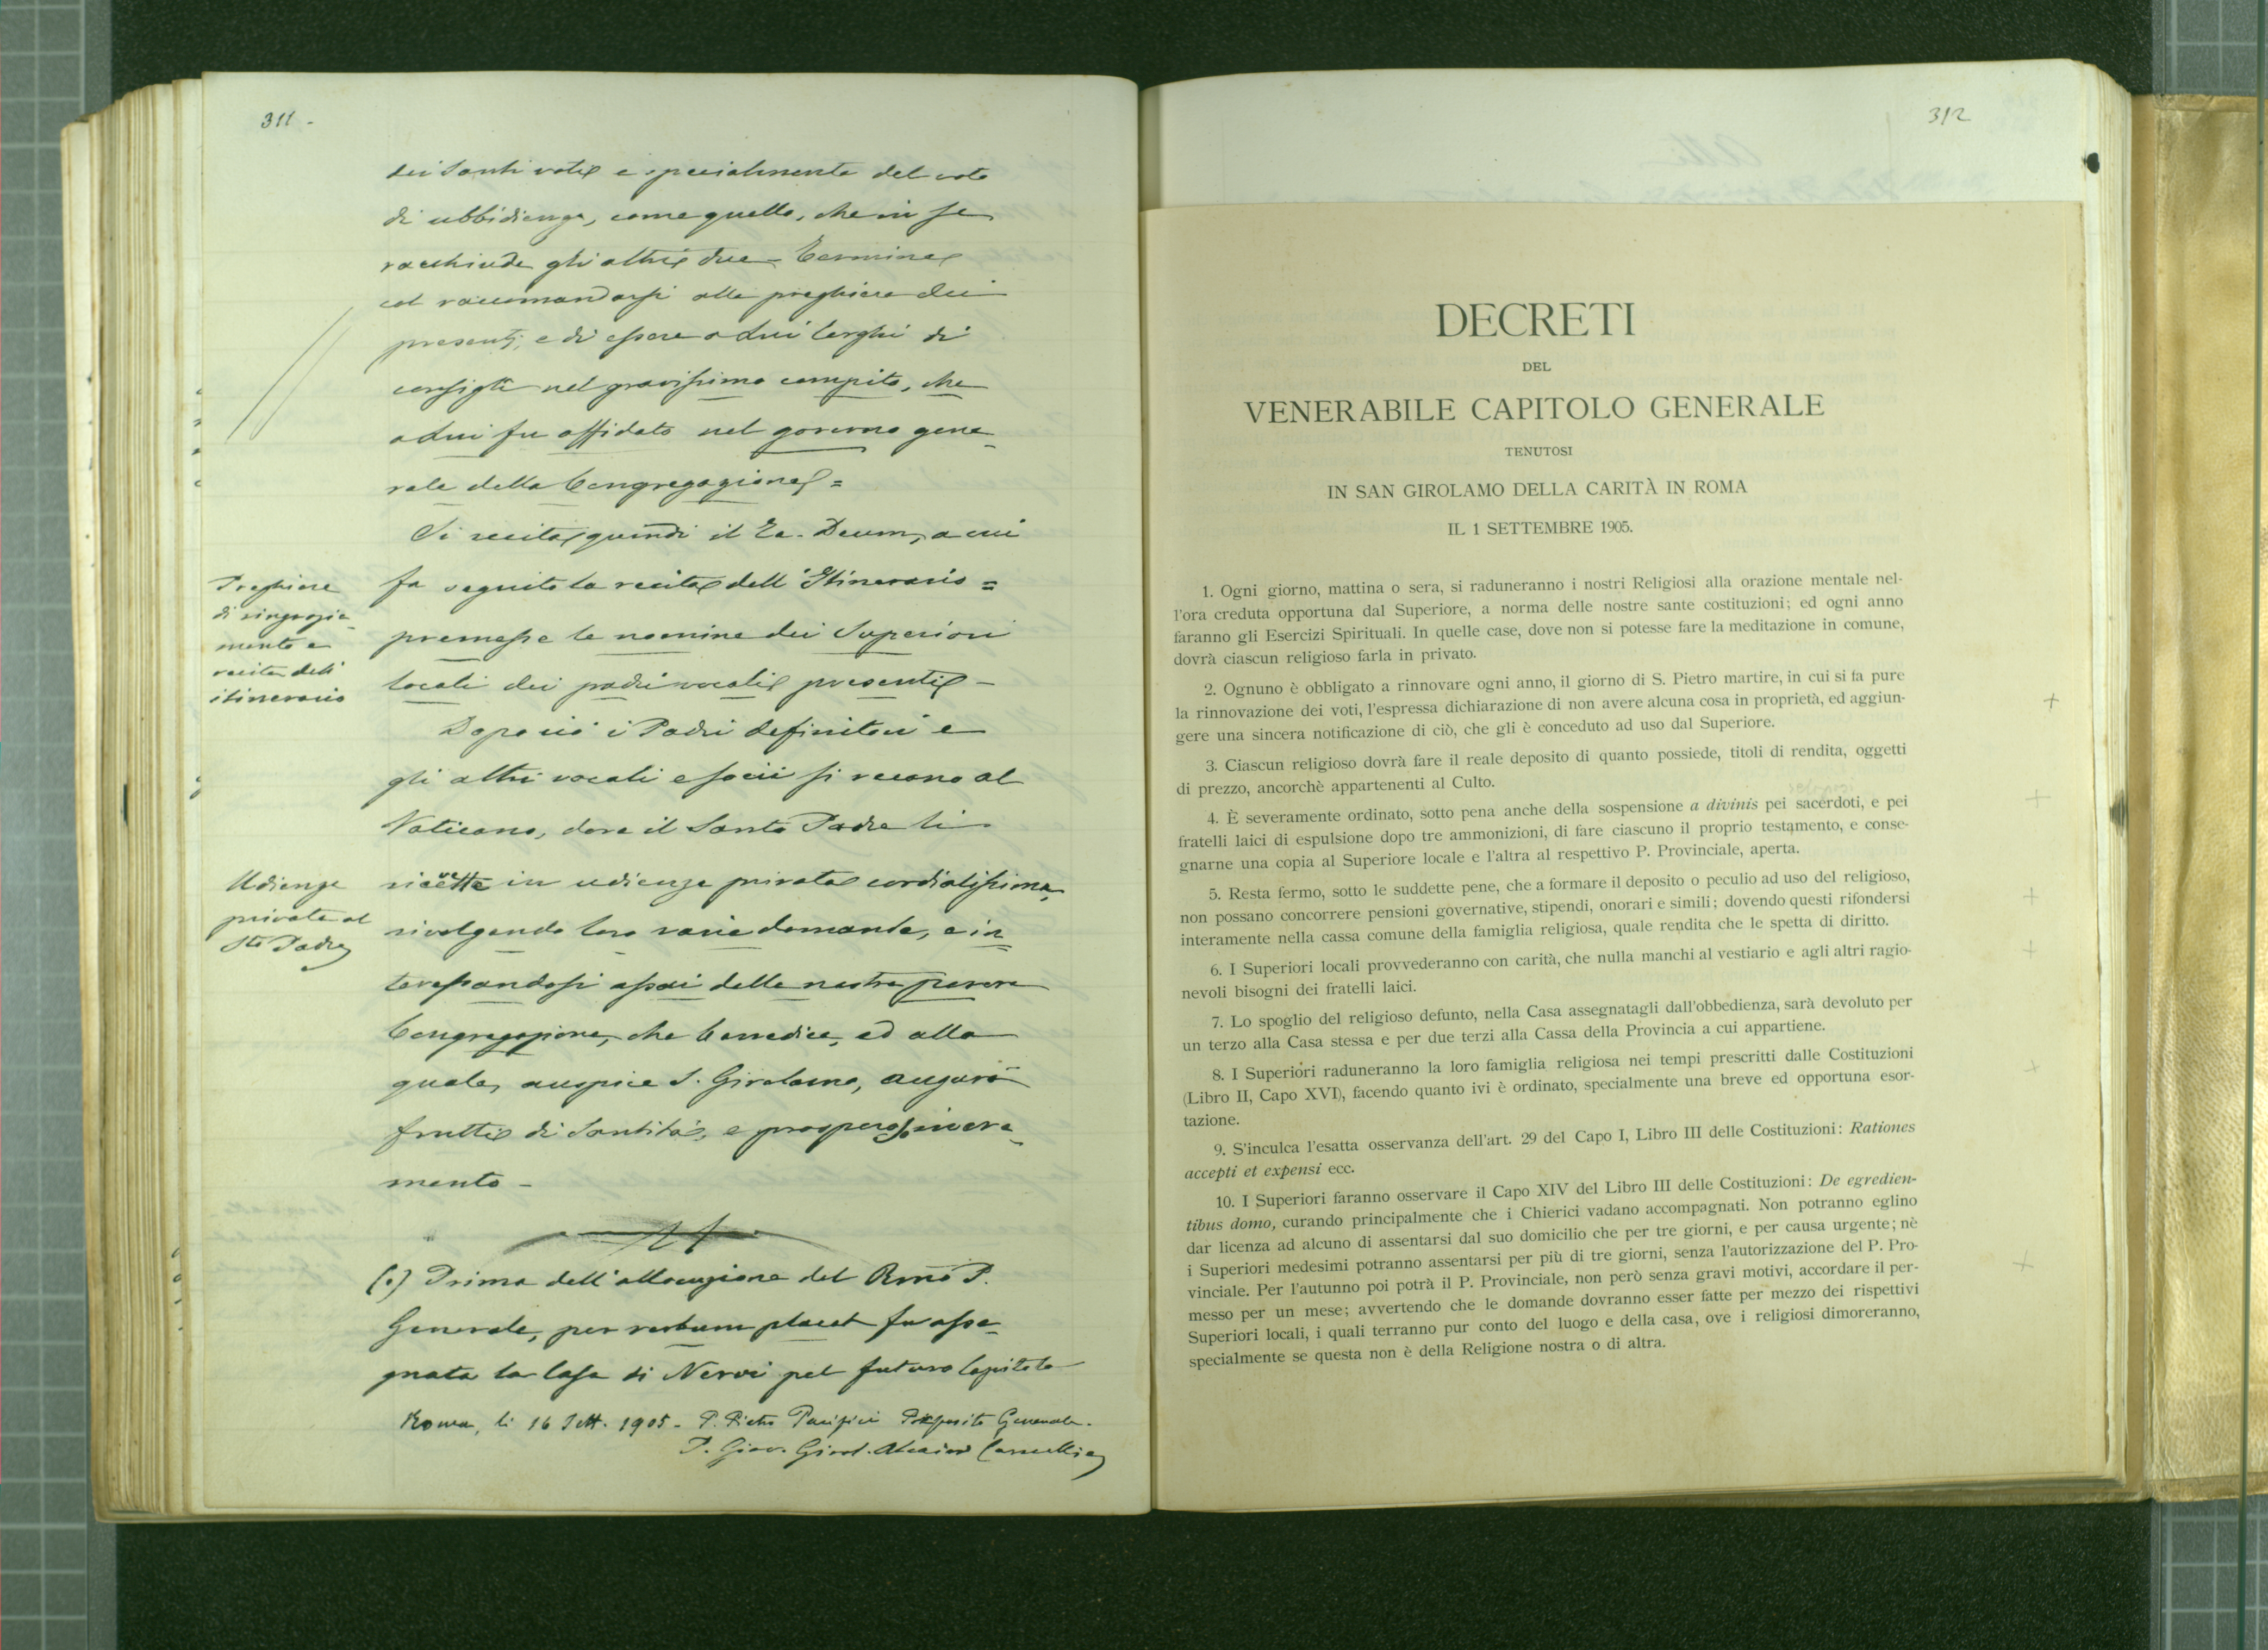 311 -
dei Santi voti e specialmente del voto
di ubbidienza, come quello, che in se
racchiude gli altri due - Termina
col raccomandarsi alle preghiere dei
presenti, e di essere a lui larghi di
consigli nel gravissimo compito, che
a lui fu affidato nel governo gene
rale della Congregazione =
Si recita quindi il Te. Deum, a cui
Preghiere
di ringrazia
mento e
recita dell'
itinerario
fa seguito la recita dell'Itinerario =
premesse le nomine dei Superiori
locali dei padri vocali presenti -
Dopo ciò i Padri definitori e
gli altri vocali e socii si recano al
Vaticano, dove il Santo Padre li
Udienza
privata al
Sto Padre
ricevette in udienza privata cordialissima,
rivolgendo loro varie domande, e in
teressandosi assai della nostra povera
Congregazione, che benedice, ed alla
quale, auspice S. Girolamo, augurò
frutti di Santità, e prospero incre
mento -
(•) Prima dell'allocuzione del Rmo P.
Generale, per verbum placet fu asse
gnata la Casa di Nervi pel futuro Capitolo
Roma, li 16 Sett. 1905 - P. Pietro Pacifici Preposito Generale.
P. Giov. Girol. Cancellie
312
DECRETI
DEL
VENERABILE CAPITOLO GENERALE
TENUTOSI
IN SAN GIROLAMO DELLA CARITÀ IN ROMA
IL 1 SETTEMBRE 1905.
1. Ogni giorno, mattina o sera, si raduneranno i nostri Religiosi alla orazione mentale nel-
l'ora creduta opportuna dal Superiore, a norma delle nostre sante costituzioni; ed ogni anno
faranno gli Esercizi Spirituali. In quelle case, dove non si potesse fare la meditazione in comune,
dovrà ciascun religioso farla in privato.
2. Ognuno è obbligato a rinnovare ogni anno, il giorno di S. Pietro martire, in cui si fa pure
la rinnovazione dei voti, l'espressa dichiarazione di non avere alcuna cosa in proprietà, ed aggiun-
gere una sincera notificazione di ciò, che gli è conceduto ad uso dal Superiore.
3. Ciascun religioso dovrà fare il reale deposito di quanto possiede, titoli di rendita, oggetti
di prezzo, ancorchè appartenenti al Culto.
4. È severamente ordinato, sotto pena anche della sospensione a divinis pei sacerdoti, e pei
fratelli laici di espulsione dopo tre ammonizioni, di fare ciascuno il proprio testamento, e conse-
gnarne una copia al Superiore locale e l'altra al respettivo P. Provinciale, aperta.
5. Resta fermo, sotto le suddette pene, che a formare il deposito o peculio ad uso del religioso,
non possano concorrere pensioni governative, stipendi, onorari e simili; dovendo questi rifondersi
interamente nella cassa comune della famiglia religiosa, quale rendita che le spetta di diritto.
6. I Superiori locali provvederanno con carità, che nulla manchi al vestiario e agli altri ragio-
nevoli bisogni dei fratelli laici.
7. Lo spoglio del religioso defunto, nella Casa assegnatagli dall'obbedienza, sarà devoluto per
un terzo alla Casa stessa e per due terzi alla Cassa della Provincia a cui appartiene.
8. I Superiori raduneranno la loro famiglia religiosa nei tempi prescritti dalle Costituzioni
(Libro II, Capo XVI), facendo quanto ivi è ordinato, specialmente una breve ed opportuna esor-
tazione.
9. S'inculca l'esatta osservanza dell'art. 29 del Capo I, Libro III delle Costituzioni: Rationes
accepti et expensi ecc.
10. I Superiori faranno osservare il Capo XIV del Libro III delle Costituzioni: De egredien-
tibus domo, curando principalmente che i Chierici vadano accompagnati. Non potranno eglino
dar licenza ad alcuno di assentarsi dal suo domicilio che per tre giorni, e per causa urgente; nè
i Superiori medesimi potranno assentarsi per più di tre giorni, senza l'autorizzazione del P. Pro-
vinciale. Per l'autunno poi potrà il P. Provinciale, non però senza gravi motivi, accordare il per-
messo per un mese; avvertendo che le domande dovranno esser fatte per mezzo dei rispettivi
Superiori locali, i quali terranno pur conto del luogo e della casa, ove i religiosi dimoreranno,
specialmente se questa non è della Religione nostra o di altra.